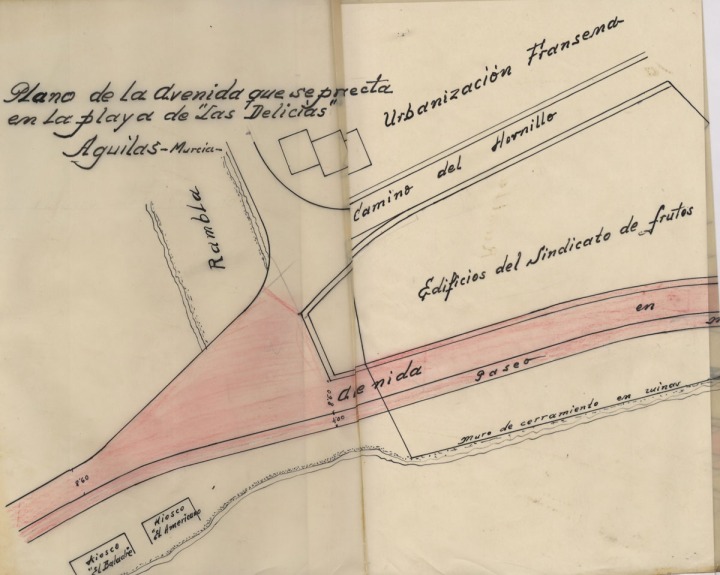 Plano de la Avenida que se precta
en La playa de "Las Delicias"
Aguilas - Murcia -
Urbanización Fransena
Camino del Hornillo
Rambla
Edificios del Sindicato de frutos
Avenida en
Paseo
muro de cerramiento en ruinas
8'60
Kiosco
"El Americano
Kiosco
"El Baladre"